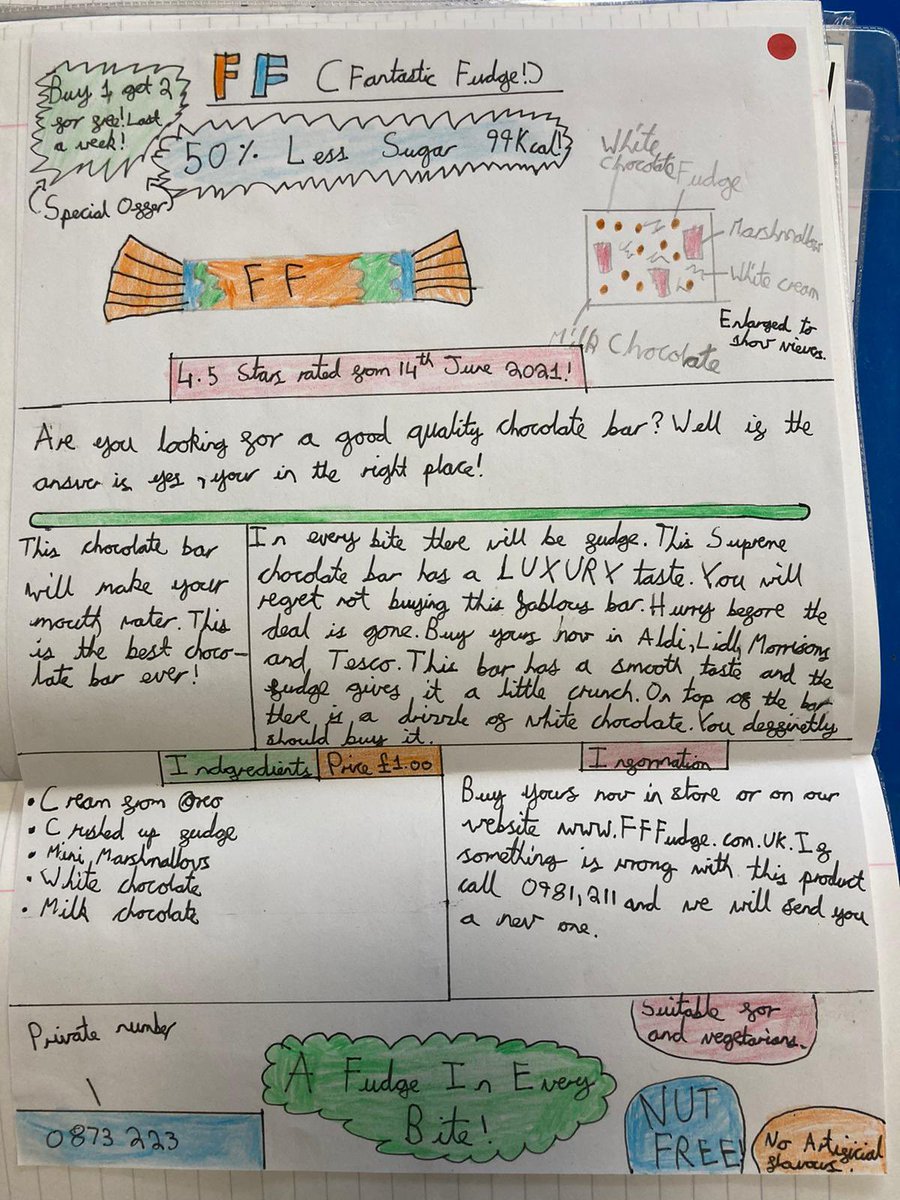 FF (Fantastic Fudge!)
Buy 1, get 2
for free! Last
a week!
(Special Offer)
50% Less Sugar 99Kcal!
White
Chocolate
Fudge
Marshmallow
White cream
Milk Chocolate
Enlarged to
show views.
FF
4.5 Stars rated from 14th June 2021!
Are you looking for a good quality chocolate bar? Well if the
answer is yes, your in the right place!
This chocolate bar
will make your
mouth water. This
is the best choco-
late bar ever!
In every bite there will be fudge. This Supreme
chocolate bar has a LUXURY taste. You will
regret not buying this fablous bar. Hurry before the
deal is gone. Buy yours now in Aldi, Lidl, Morrisons
and Tesco. This bar has a smooth taste and the
fudge gives it a little crunch. On top of the bar
there is a drizzle of white chocolate. You deffinetly
should buy it.
Indgredients
Price £1.00
• Cream from Oreo
• Crushed up fudge
• Mini Marshmallows
• White chocolate
• Milk chocolate
Information
Buy yours now in store or on our
website www.FFFudge.com.UK. If
something is wrong with this product
call 0981,211 and we will send you
a new one.
Private number
0873 223
A Fudge In Every
Bite!
Suitable for
and vegetarians.
NUT
FREE!
No Artificial
flavours.